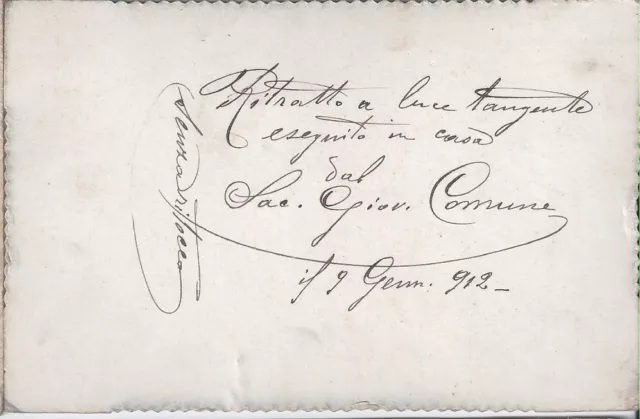 Ritratto a luce tangente
eseguito in casa
dal
Sac. Giov. Comune
il 9 Genn. 912 -
Senza ritocco